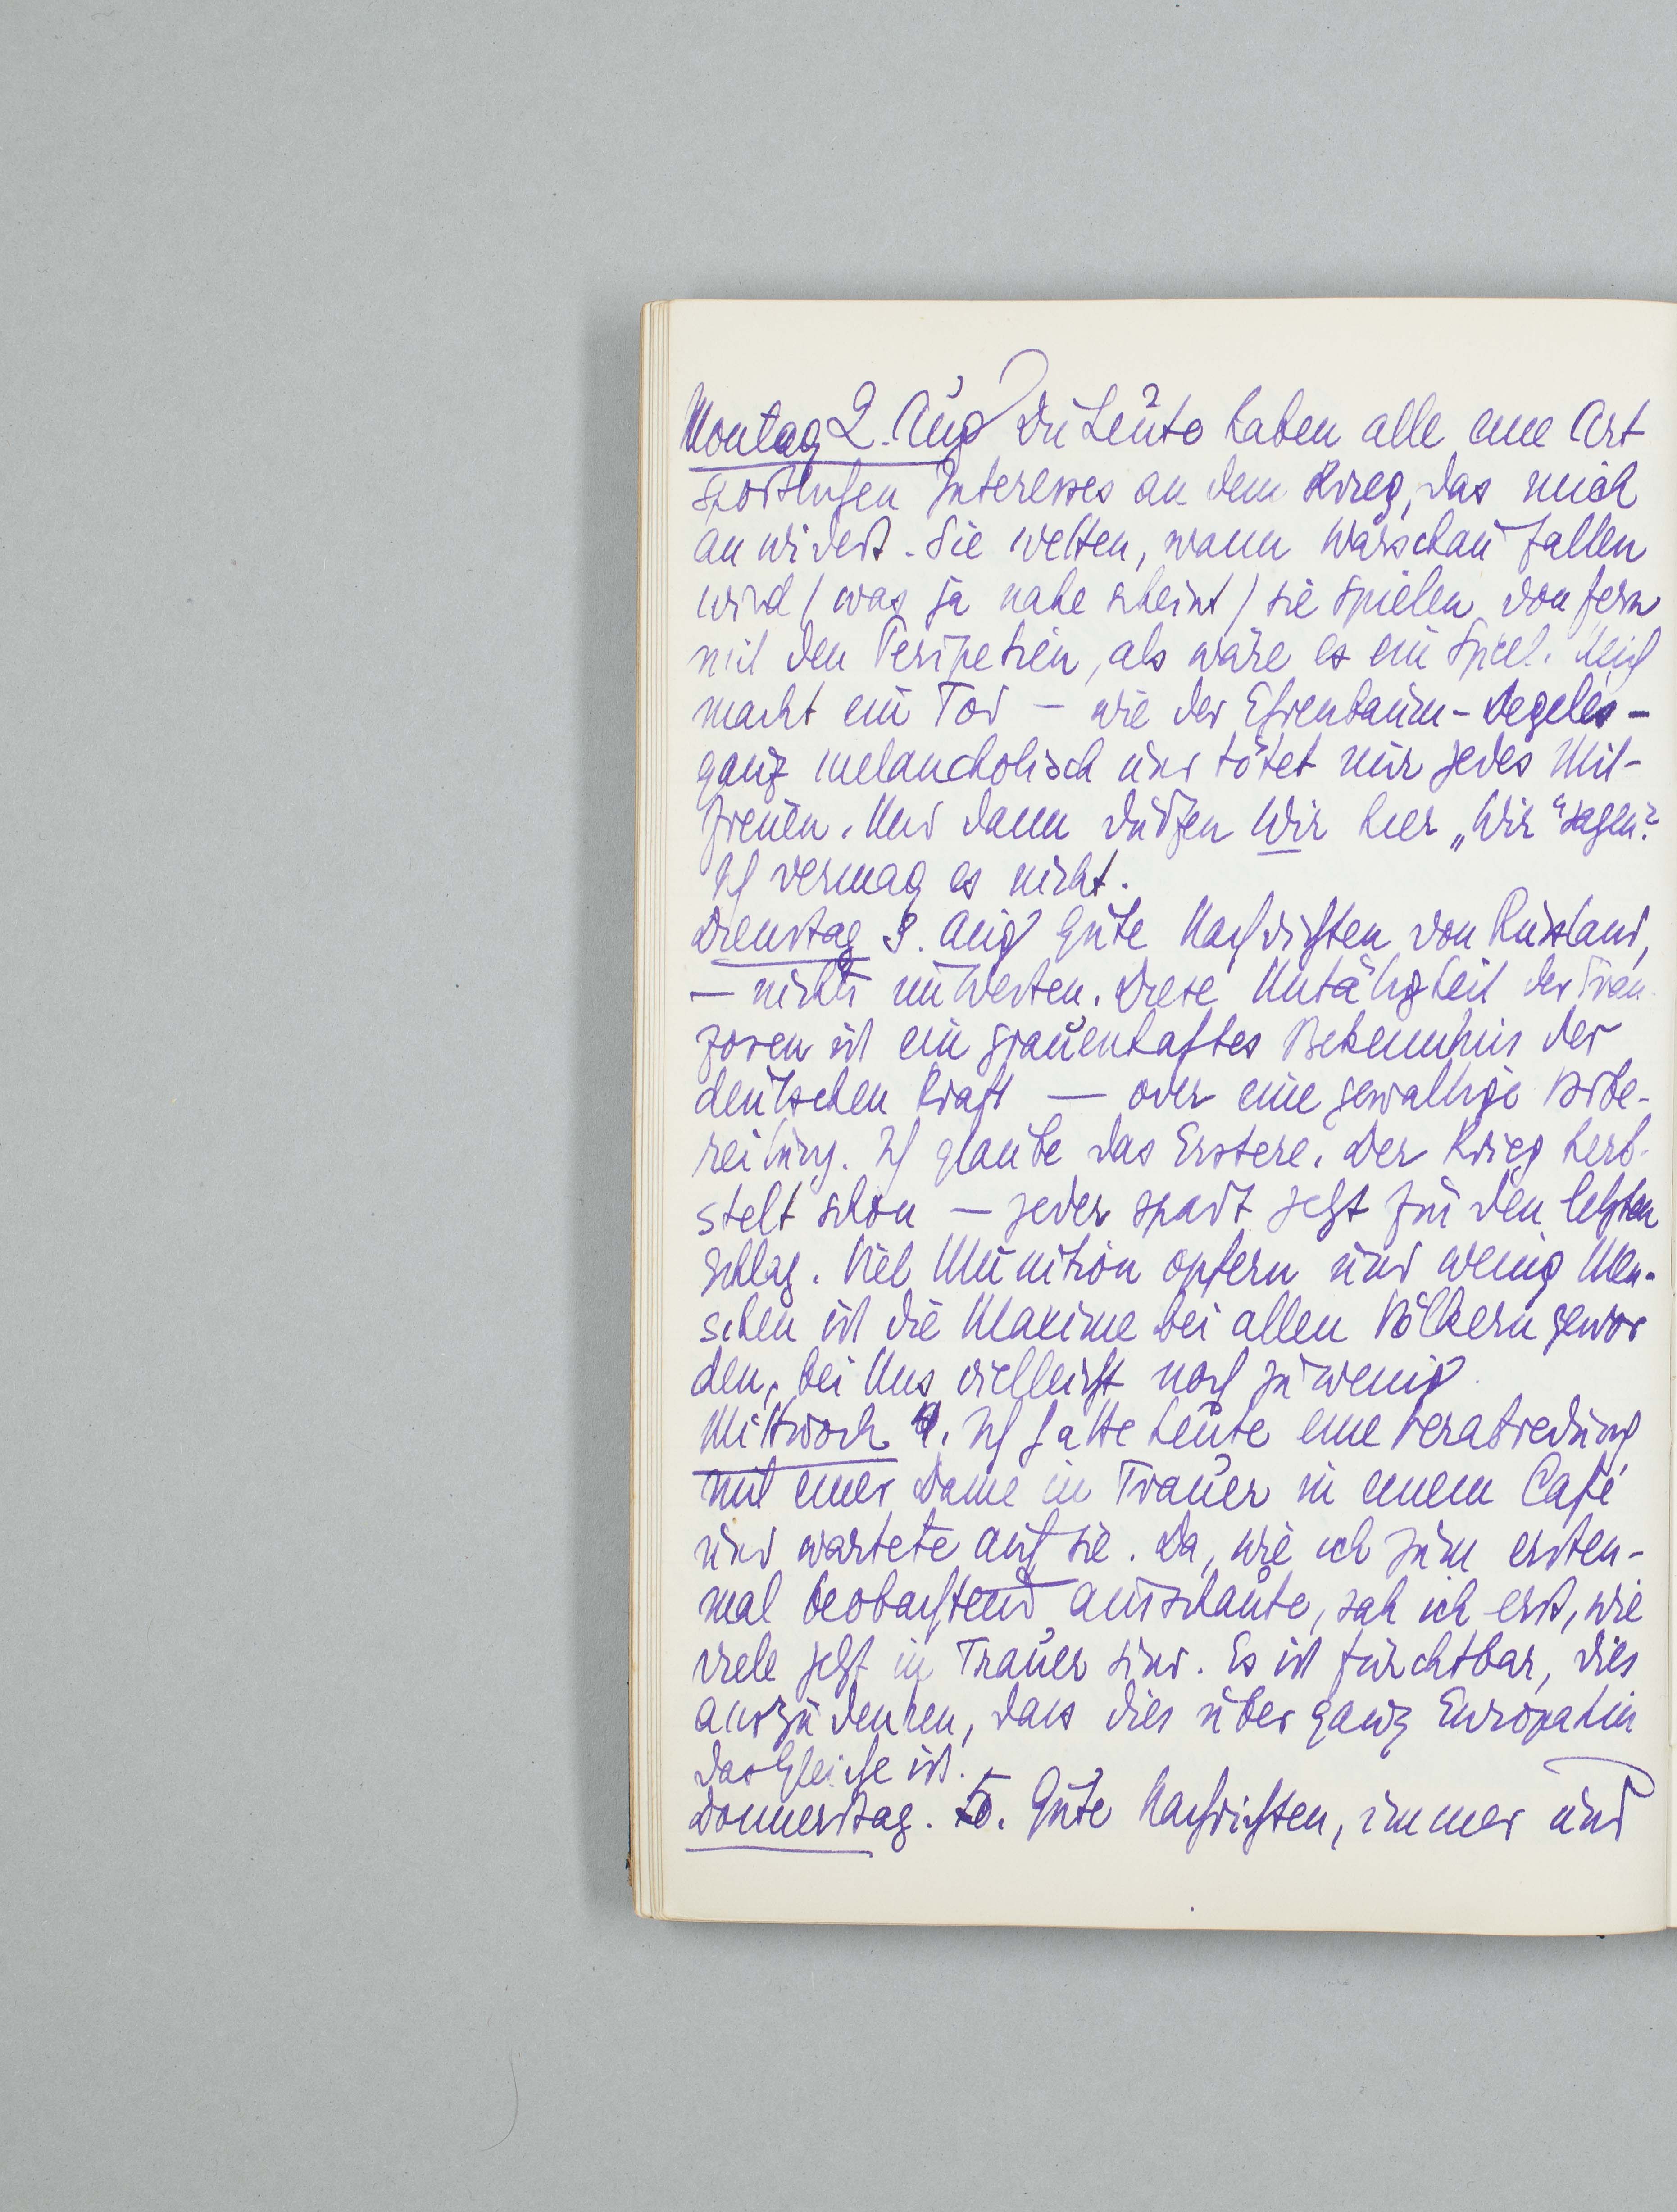 Montag 2. Aug Die Leute haben alle eine Art
sportlichen Interesses an dem Krieg, das mich
anwidert. Sie wetten, wann Warschau fallen
wird (was ja nahe scheint) sie spielen von fern
mit den Peripetien, als wäre es ein Spiel. Mich
macht ein Tod – wie der Ehrenbaum-Degeles –
ganz melancholisch und tötet mir jedes Mit-
freuen. Und dann dürfen wir hier „Wir" sagen?
Ich vermag es nicht.
Dienstag 3. Aug Gute Nachrichten von Russland,
– nichts im Westen. Diese Untätigkeit der Fran-
zosen ist ein grauenhaftes Bekenntnis der
deutschen Kraft – oder eine gewaltige Vorbe-
reitung. Ich glaube das Erstere. Der Krieg herb-
stelt schon – jeder spart jetzt für den letzten
Schlag. Viel Munition opfern und wenig Men-
schen ist die Maxime bei allen Völkern gewor
den, bei Uns vielleicht noch zu wenig.
Mittwoch 4. Ich hatte heute eine Verabredung
mit einer Dame in Trauer in einem Café
und wartete auf sie. Da, wie ich zum ersten-
mal beobachtend ausschaute, sah ich erst, wie
viele jetzt in Trauer sind. Es ist furchtbar, dies
auszudenken, dass dies über ganz Europa hin
das Gleiche ist.
Donnerstag. 5. Gute Nachrichten, immer und